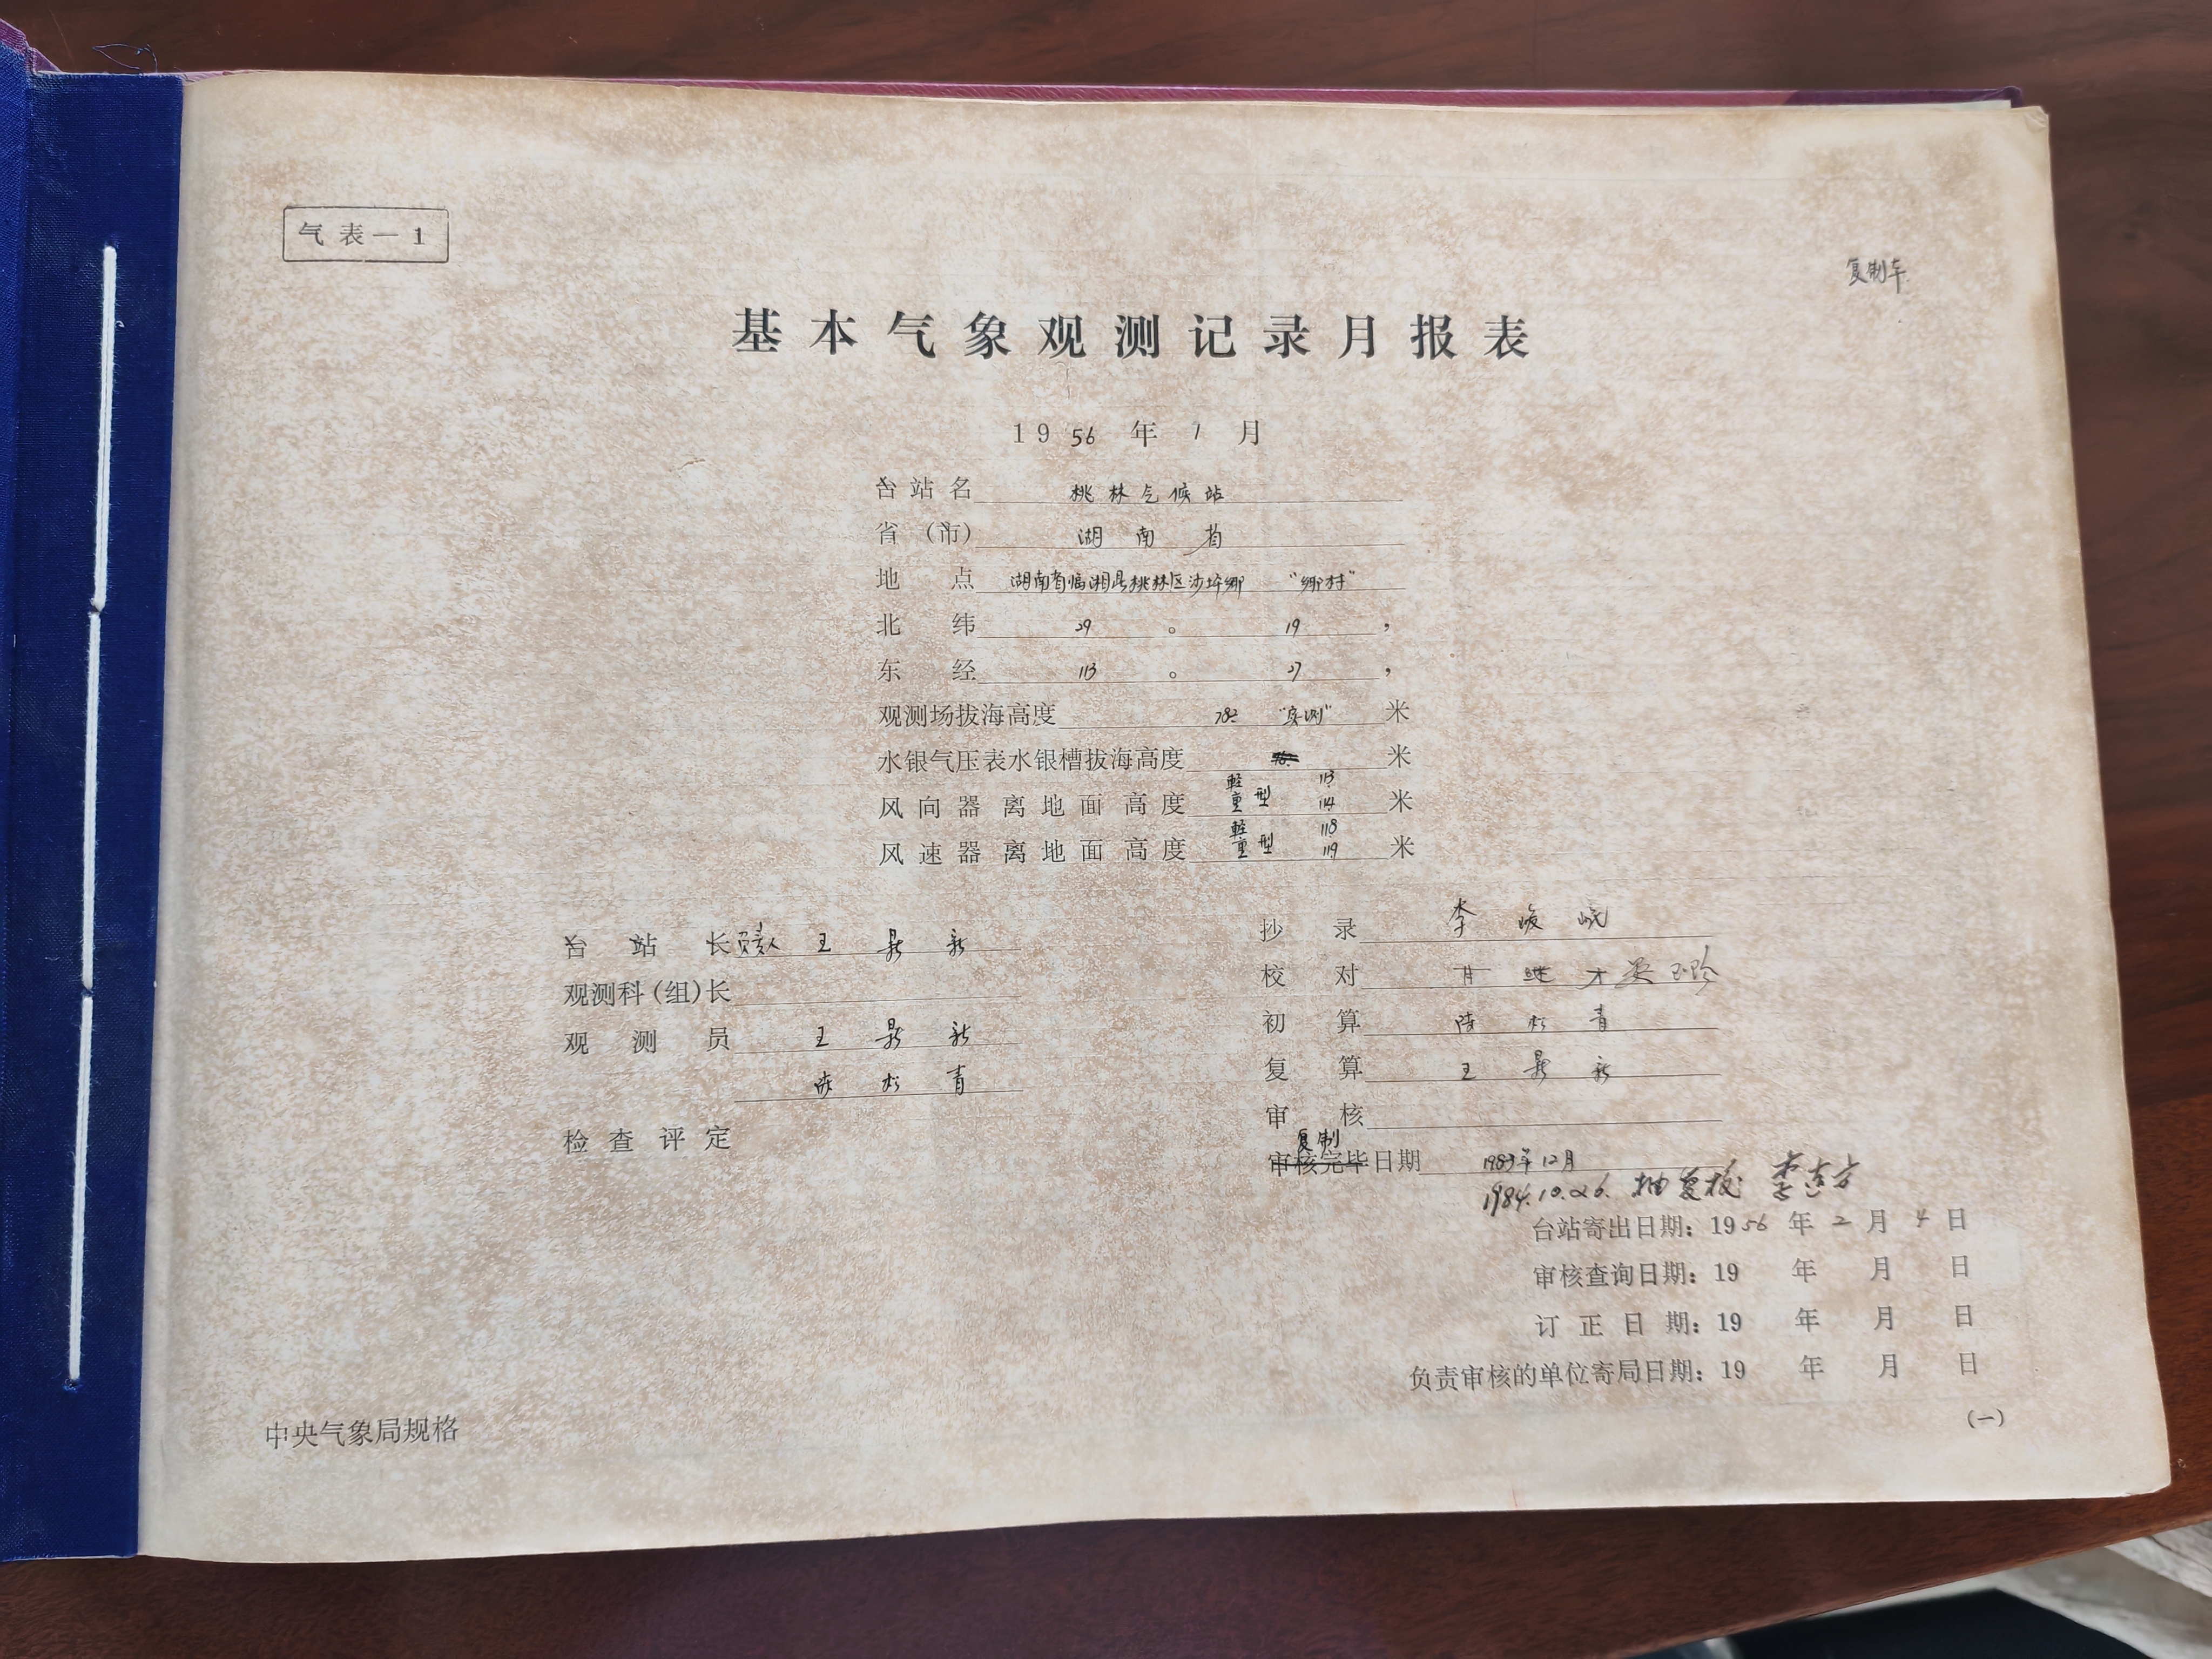 气表—1
复制本
基本气象观测记录月报表
1956年1月
台站名 桃林气候站
省(市) 湖南省
地点 湖南省临湘县桃林区沙坪乡 "乡村"
北纬 29° 19,
东经 113° 27,
观测场拔海高度 782 "实测" 米
水银气压表水银槽拔海高度 米
风向器离地面高度 轻重型 113 114 米
风速器离地面高度 轻重型 118 119 米
台站长 负责人 王
抄录 李
观测科(组)长
校对
观测员 王
初算 陈松青
陈松青
复算 王
审核
检查评定
复制
审核完毕日期 1983年12月
1984.10.26. 抽复校 李
台站寄出日期:1956年2月4日
审核查询日期:19 年 月 日
订正日期:19 年 月 日
负责审核的单位寄局日期:19 年 月 日
中央气象局规格
(一)